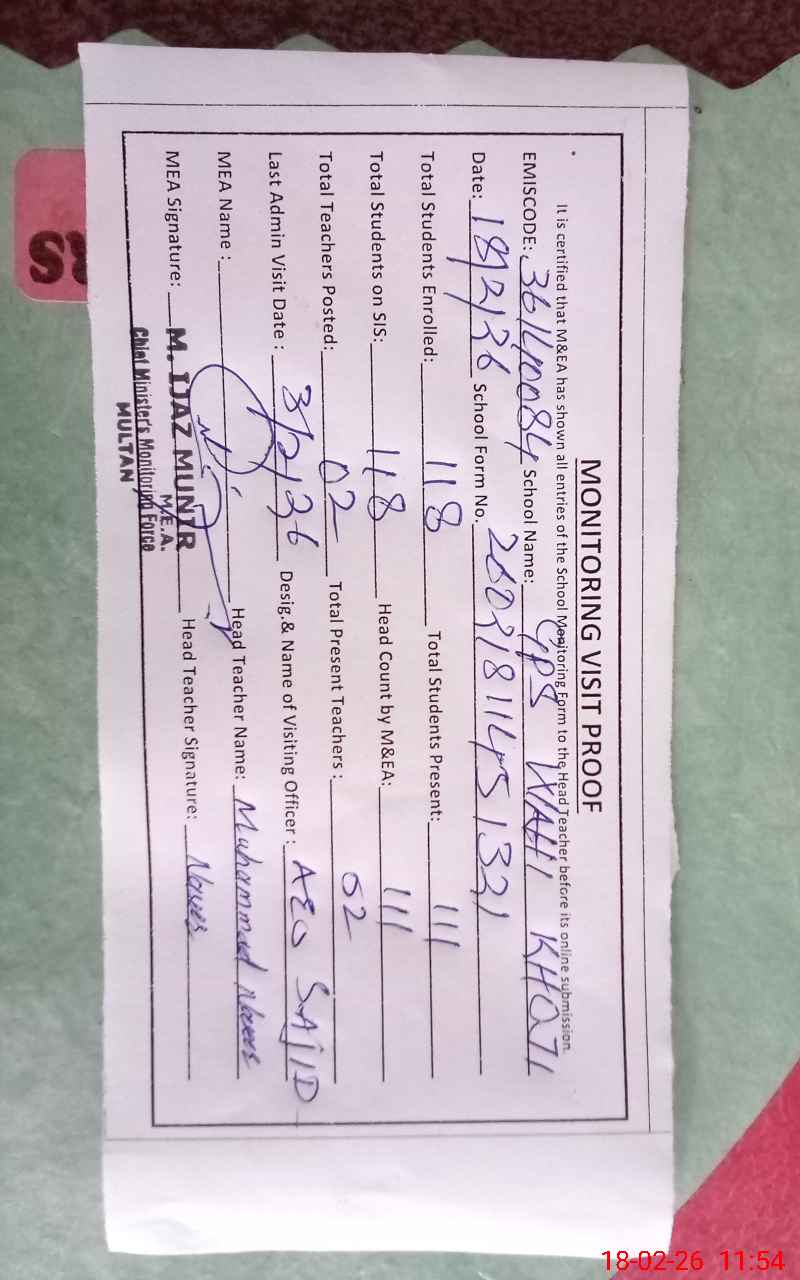 MONITORING VISIT PROOF
It is certified that M&EA has shown all entries of the School Monitoring Form to the Head Teacher before its online submission.
EMISCODE: 36140084 School Name: GPS WAHI KHOJI
Date: 18/2/26 School Form No. 26021811451321
Total Students Enrolled: 118 Total Students Present: 111
Total Students on SIS: 118 Head Count by M&EA: 111
Total Teachers Posted: 02 Total Present Teachers : 02
Last Admin Visit Date : 3/2/26 Desig.& Name of Visiting Officer : AEO SAJID
MEA Name : Head Teacher Name: Muhammad
MEA Signature: M. IJAZ MUNIR Head Teacher Signature:
M.E.A.
Chief Minister's Monitoring Force
MULTAN
S
18-02-26 11:54